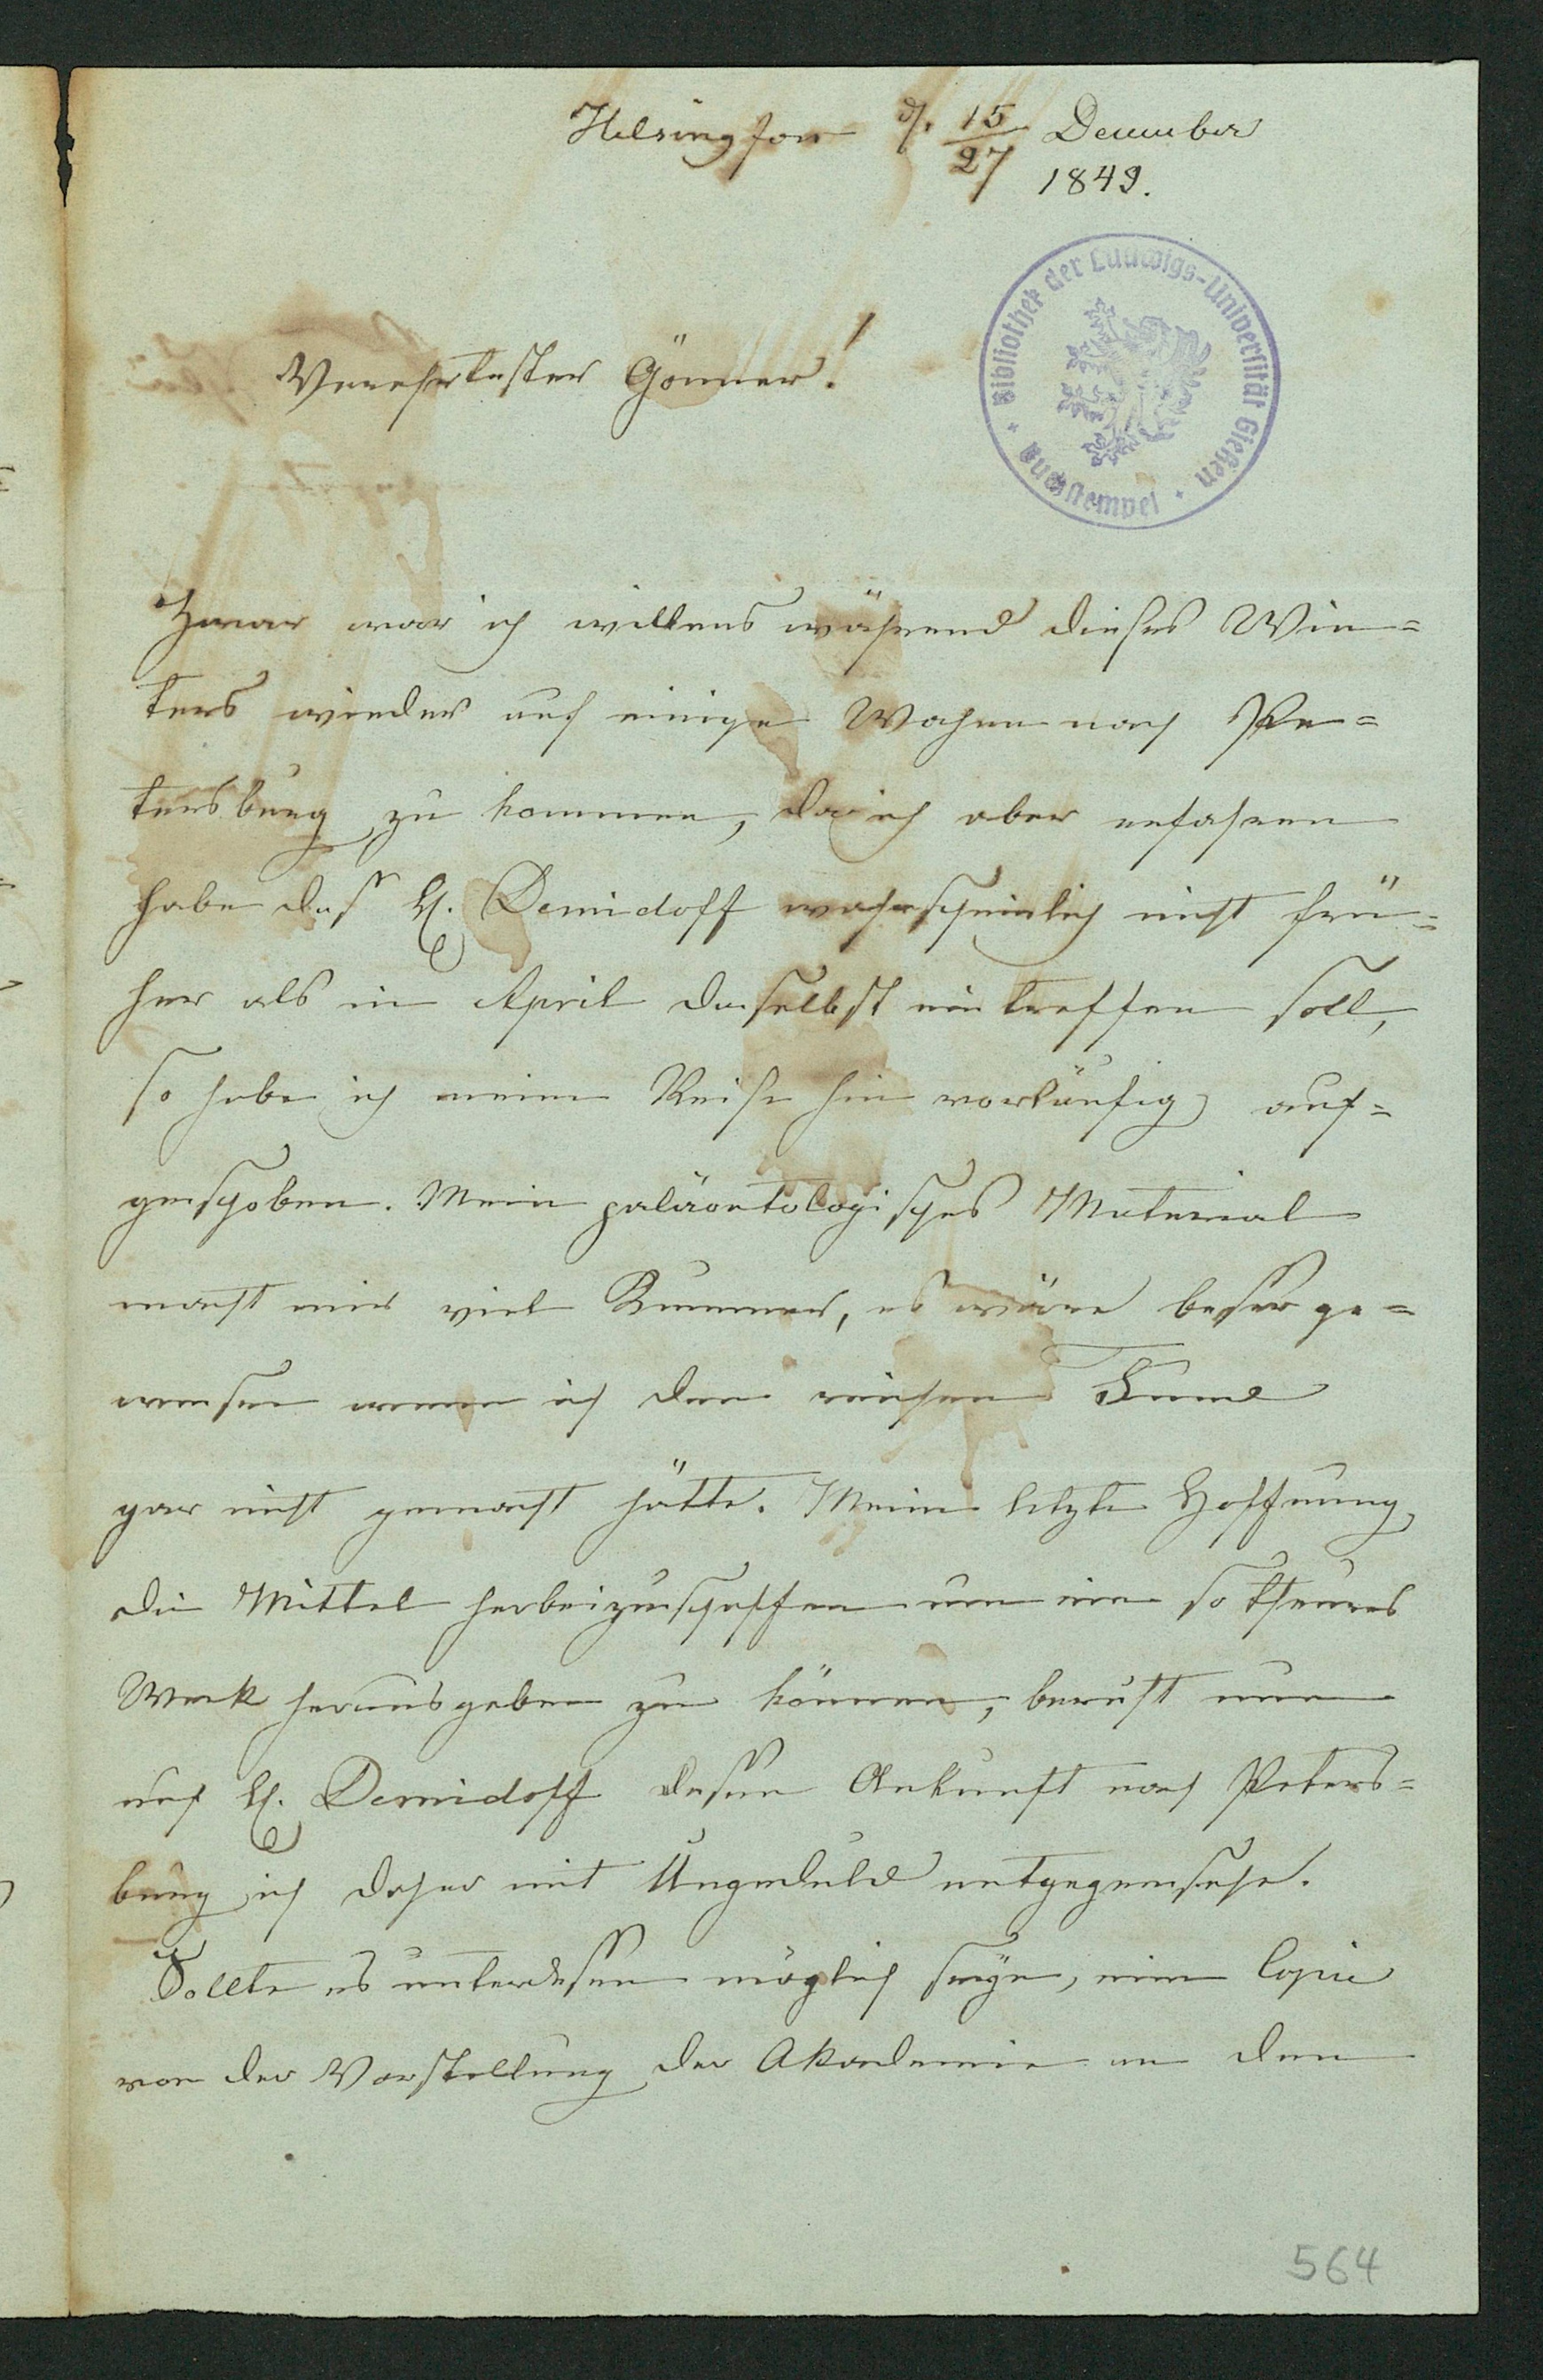 Helsingfors d. 15/27 December
1849.
Verehrtester Gönner!
Bibliothek der Ludwigs-Universität Gießen
Buchstempel
Zwar war ich willens während dieses Win=
ters wieder auf einige Wochen nach Pe=
tersburg zu kommen, da ich aber erfahren
habe dass H. Demidoff wahrscheinlich nicht frü=
her als im April daselbst eintreffen soll,
so habe ich meine Reise hin vorläufig auf=
geschoben. Mein paläontologisches Material
macht mir viel Kummer, es wäre besser ge=
wesen wenn ich den reichen Fund
gar nicht gemacht hätte. Meine letzte Hoffnung
die Mittel herbeizuschaffen um ein so theures
Werk herausgeben zu können, beruht nun
auf H. Demidoff dessen Ankunft nach Peters=
burg ich daher mit Ungeduld entgegensehe.
Sollte es unterdessen möglich seyn, eine Copie
von der Vorstellung der Akademie an den
564